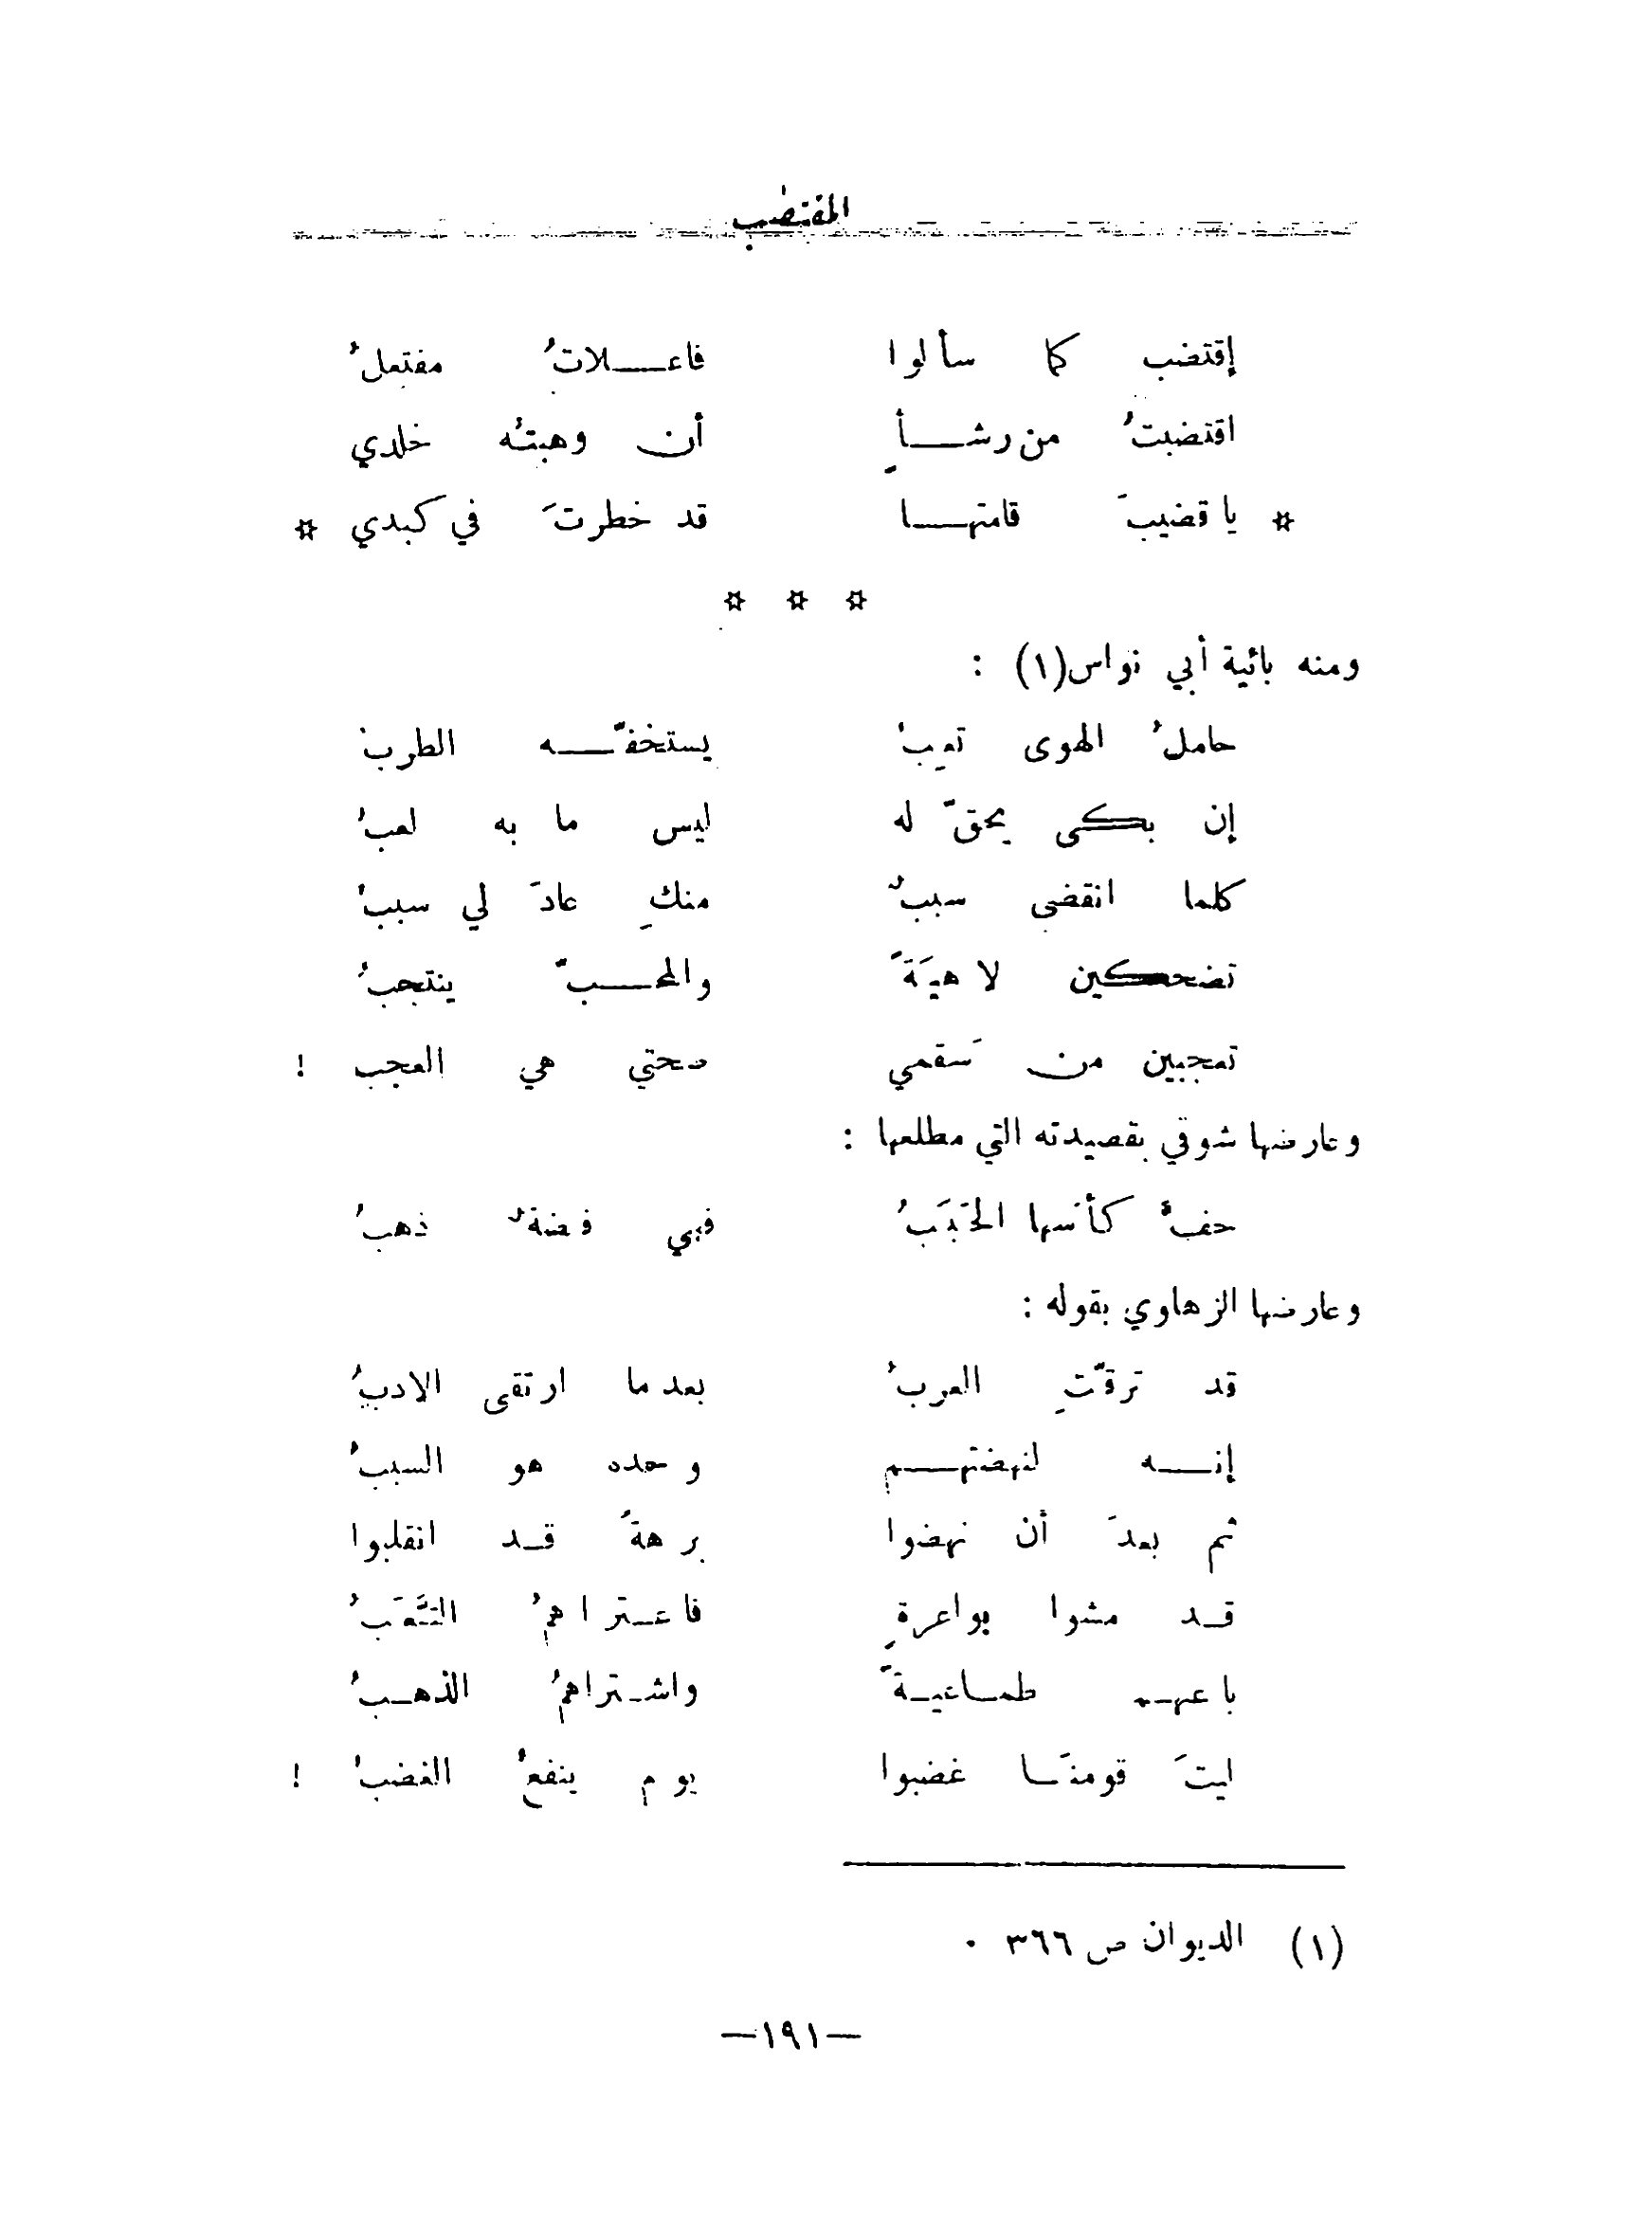 المقتضب
إقتضب كما سألوا فاعـــلاتُ مفتعلُ
اقتضبتُ من رشـــأٍ أن وهبتُه خلدي
* يا قضيبَ قامتهـــا قد خطرتَ في كبدي *
* * *
ومنه بائية أبي نواس(١) :
حاملُ الهوى تعِبُ يستخفّـــه الطربُ
إن بكى يحقّ له ليس ما به لعبُ
كلما انقضى سببٌ منكِ عادَ لي سببُ
تضحكين لاهيَةً والمحـــبّ ينتحبُ
تعجبين من سَقمي صحتي هي العجب !
وعارضها شوقي بقصيدته التي مطلعها :
حفَّ كأسَها الحَبَبُ فهي فضةٌ ذهبُ
وعارضها الزهاوي بقوله :
قد ترقّتِ العربُ بعدما ارتقى الادبُ
إنـــه لنهضتهـــم وحده هو السببُ
ثم بعدَ أن نهضوا برهةً قـد انقلبوا
قـد مشوا بواعرةٍ فاعـتراهمُ التَّعَبُ
باعهـم طمـاعيـةً واشـتراهمُ الذهـبُ
ليتَ قومنَـا غضبوا يوم ينفعُ الغضبُ !
(١) الديوان ص ٣٦٦ .
—١٩١—